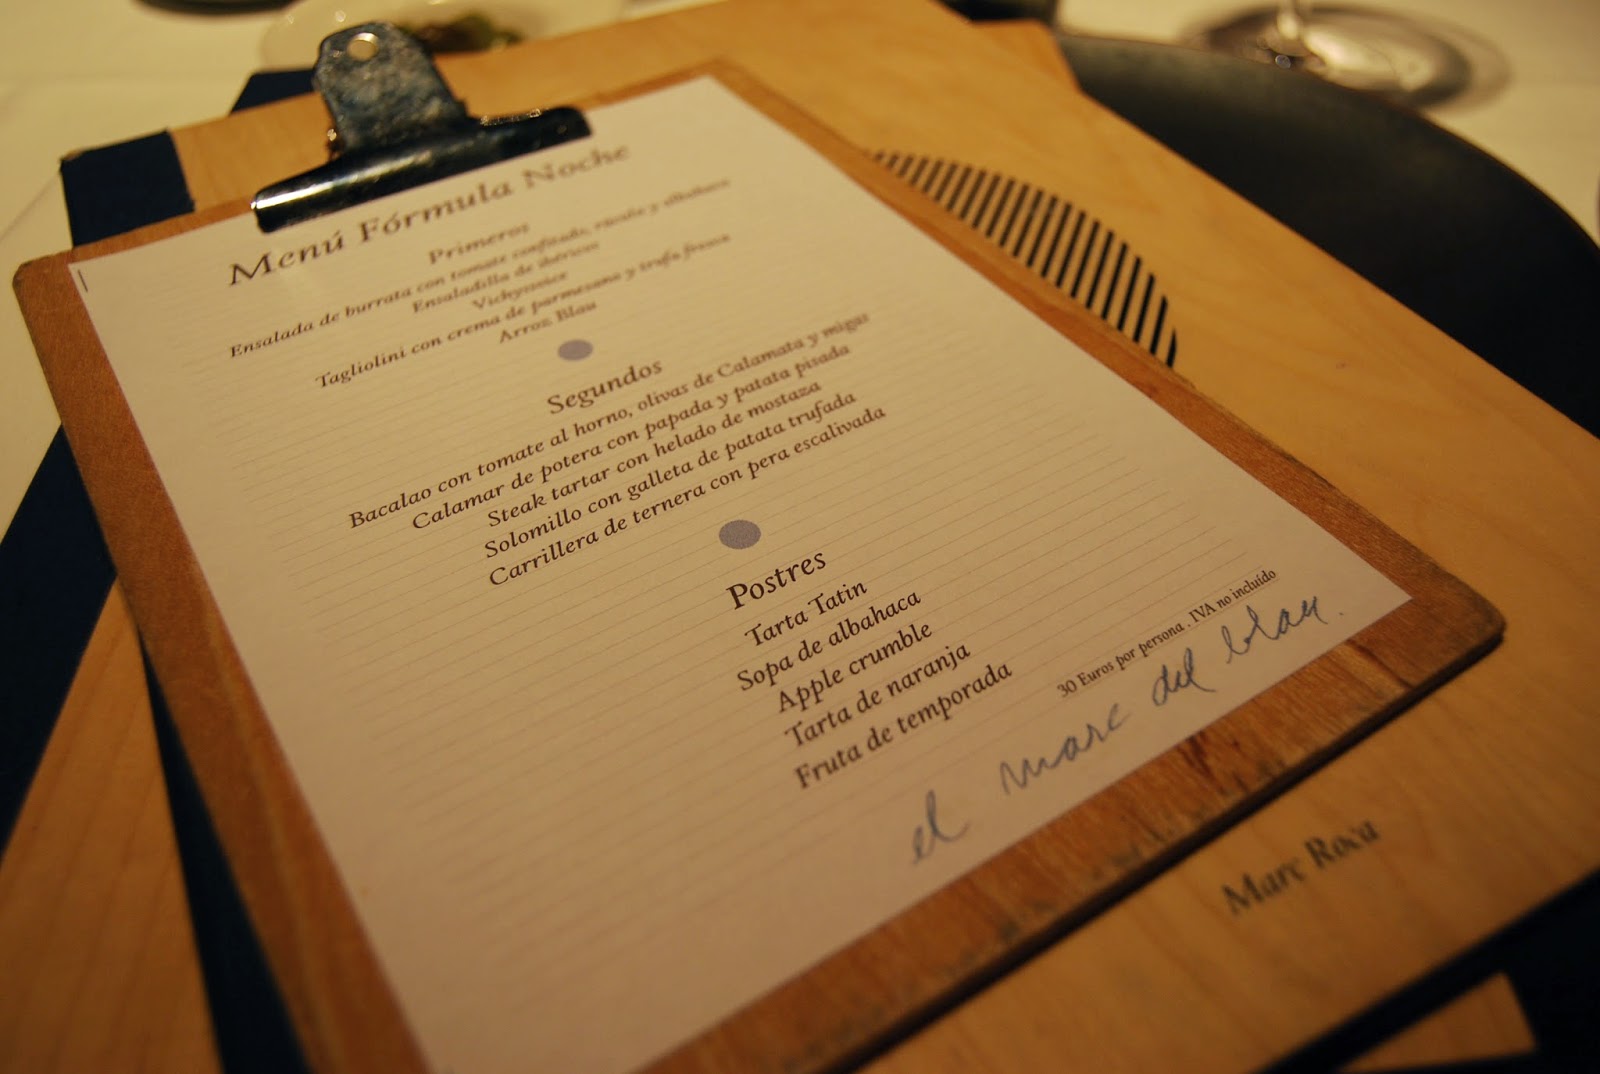 Menú Fórmula Noche
Primeros
Ensalada de burrata con tomate confitado, y albahaca
Ensaladilla de ibéricos
Vichyssoise
Tagliolini con crema de parmesano y trufa fresca
Arroz Blau
Segundos
Bacalao con tomate al horno, olivas de Calamata y migas
Calamar de potera con papada y patata pisada
Steak tartar con helado de mostaza
Solomillo con galleta de patata trufada
Carrillera de ternera con pera escalivada
Postres
Tarta Tatin
Sopa de albahaca
Apple crumble
Tarta de naranja
Fruta de temporada
30 Euros por persona . IVA no incluído
el marc del blau.
Marc Roca